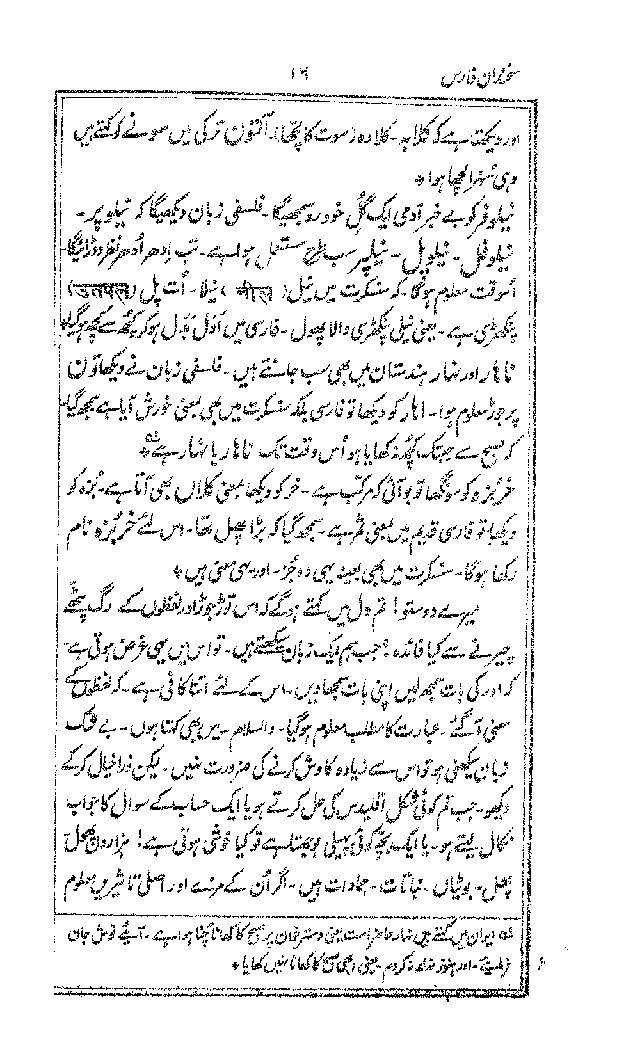 سخندان فارس ۱۶
اور دیکھتے ہے کہ کلابہ - کلادہ (سوت کا لچھا)۔ آلتون ترکی میں سونے کو کہتے ہیں
وہی سنہرا لچھا ہوا *
نیلوفر کو بے خبر آدمی ایک گل خودرو سمجھیگا۔ فلسفی زبان دیکھیگا کہ نیلوپر -
نیلوفل - نیلوپل - نیلپر سب طرح مستعمل ہوا ہے - تب ادھر اُدھر نظر دوڑائیگا
اُسوقت معلوم ہوگا۔ کہ سنسکرت میں نیل (नील) نیلا - اُت پل (उतपल)
پنکھڑی ہے - یعنی نیلی پنکھڑی والا پھول - فارسی میں اَدَل بَدَل ہو کر کچھ سے کچھ ہو گیا
ناہار اور نہار ہندستان میں بھی سب جانتے ہیں - فلسفی زبان نے دیکھا تو ن
پر جوڑ معلوم ہوا - اہار کو دیکھا تو فارسی بلکہ سنسکرت میں بھی بمعنی خورش آیا ہے سمجھ گیا
کہ صبح سے جبتک کچھ نہ کھایا ہو اُس وقت تک ناہار یا نہار ہے *
خربزہ کو سونگھا تو بو آئی کہ مرکب ہے - خر کو دیکھا بمعنی کلاں بھی آتا ہے - بُزہ کو
دیکھا تو فارسی قدیم میں بمعنی ثمر ہے - سمجھ گیا کہ بڑا پھل تھا - اس لئے خربزہ نام
رکھا ہوگا - سنسکرت میں بھی بعینہ یہی دو جُز - اور یہی معنی ہیں *
میرے دوستو! تم دل میں کہتے ہوگے کہ اس توڑ جوڑ اور لفظوں کے رگ پٹھے
چیرنے سے کیا فائدہ؟ جب ہم ایک زبان سیکھتے ہیں - تو اس میں یہی غرض ہوتی ہے
کہ اور کی بات سمجھ لیں اپنی بات سمجھا دیں - اس کے لئے اتنا کافی ہے - کہ لفظوں کے
معنی آ گئے - عبارت کا مطلب معلوم ہو گیا - والسلام - میں بھی کہتا ہوں - بے شک
زبان سیکھنی ہو تو اس سے زیادہ کاوش کرنے کی ضرورت نہیں - لیکن ذرا خیال کر کے
دیکھو - جب تم کوئی شکل اقلیدس کی حل کرتے ہو یا ایک حساب کے سوال کا جواب
نکال لیتے ہو - یا ایک بچہ کوئی پہیلی بوجھتا ہے تو کیا خوشی ہوتی ہے! ہزاروں پھول
پھل - بوٹیاں - نباتات - جمادات ہیں - اگر اُن کے مزے اور اصلی تاثیریں معلوم
لہ ایران میں کہتے ہیں نہار حاضر است یعنی دسترخوان پر صبح کا کھانا چنا ہوا ہے - آئیے نوش جان
فرمائیے - اور ہنوز نہار نہ کردم - یعنی ابھی صبح کا کھانا نہیں کھایا *